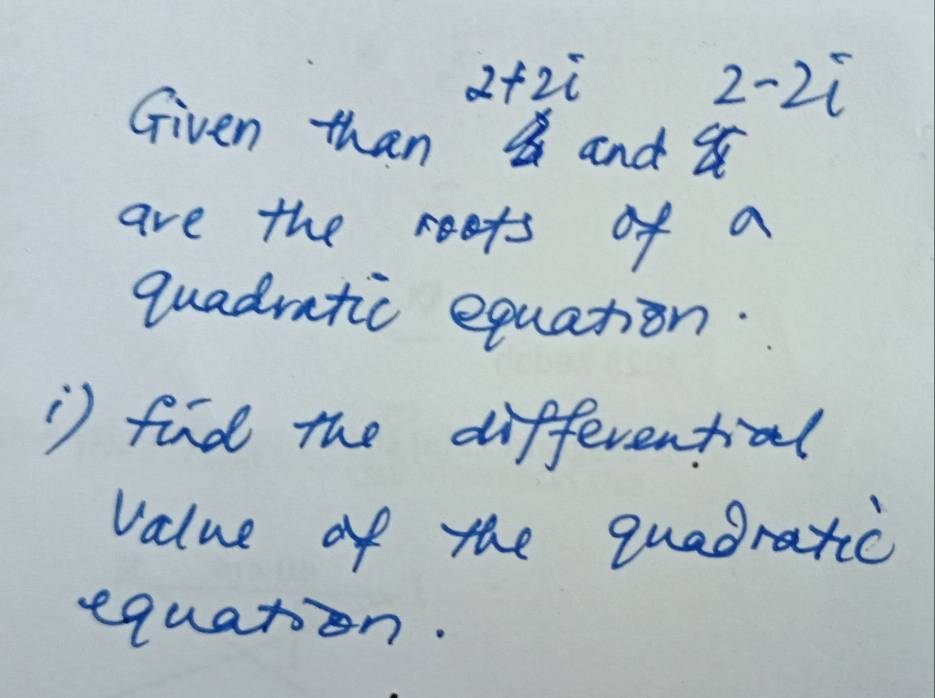 2+2i 2-2i
Given than and
are the roots of a
quadratic equation.
i) find the differential
value of the quadratic
equation.